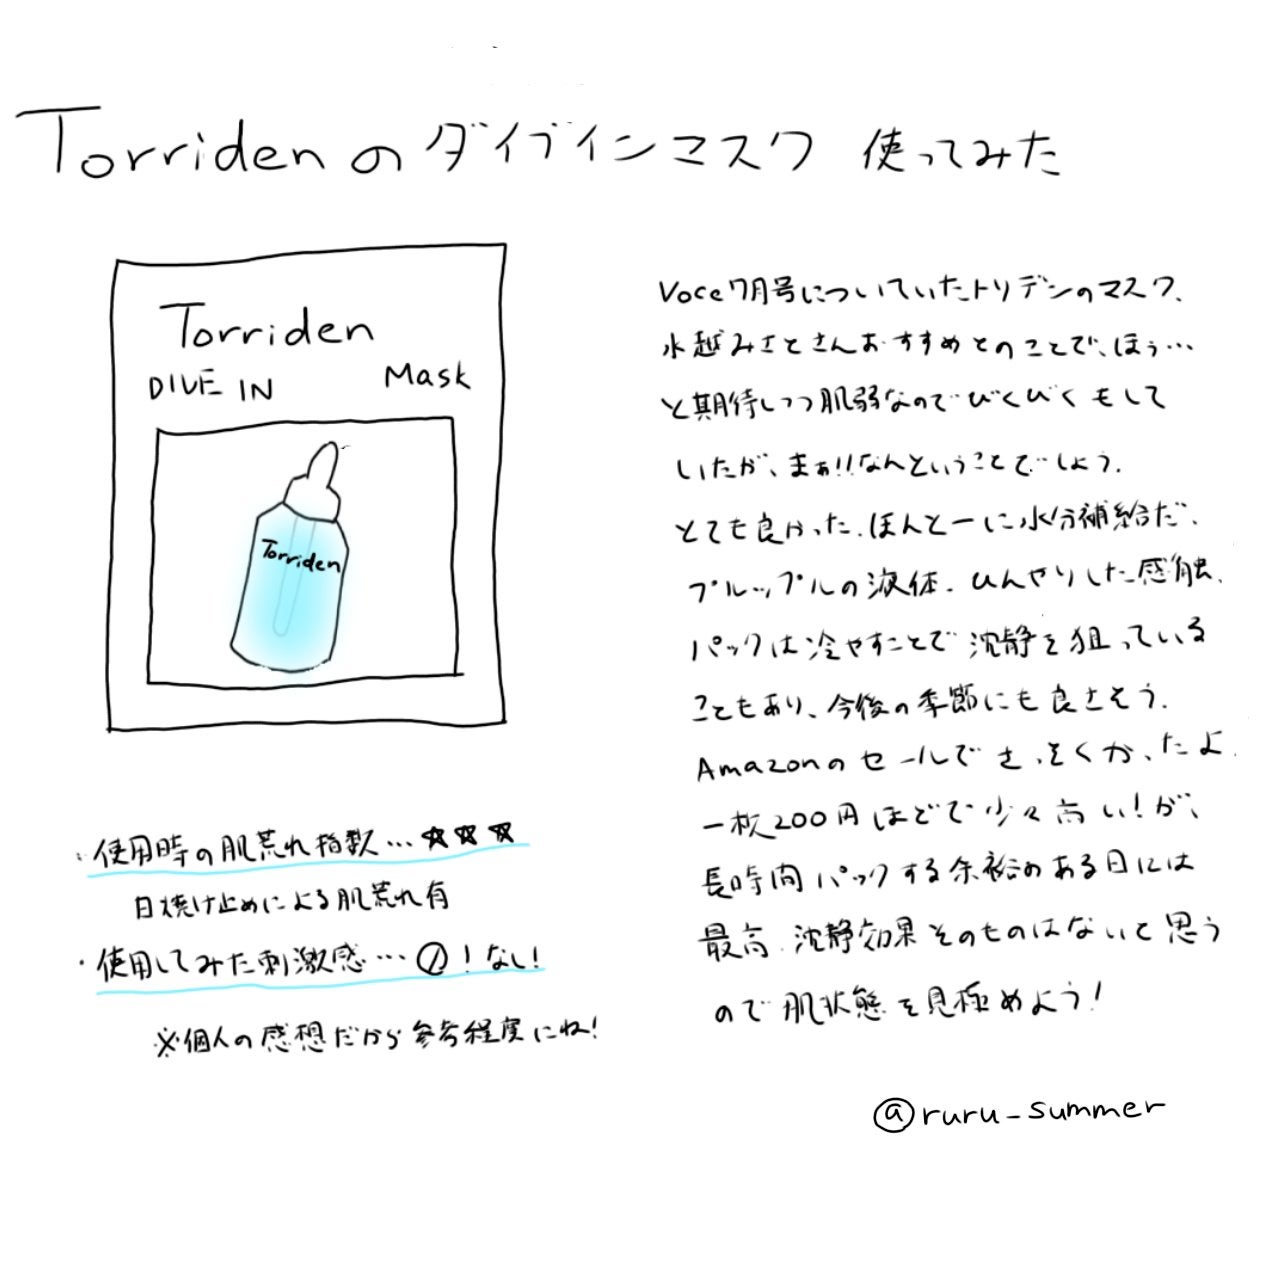 Torridenのダイブインマスク 使ってみた
Torriden
DIVE IN Mask
Torriden
Voce7月号についていたトリデンのマスク、
水越みさとさんおすすめとのことで、ほぅ…
と期待しつつ肌弱なのでびくびくもして
いたが、まぁ!!なんということでしょう。
とても良かった。ほんとーに水分補給だ、
プルップルの液体。ひんやりした感触。
パックは冷やすことで沈静を狙っている
こともあり、今後の季節にも良さそう。
Amazonのセールでさっそくかったよ。
一枚200円ほどで少々高い!が、
長時間パックする余裕のある日には
最高。沈静効果そのものはないと思う
ので肌状態を見極めよう!
・使用時の肌荒れ指数…★★★
日焼け止めによる肌荒れ有
・使用してみた刺激感…⓪!なし!
※個人の感想だから参考程度にね!
@ruru_summer